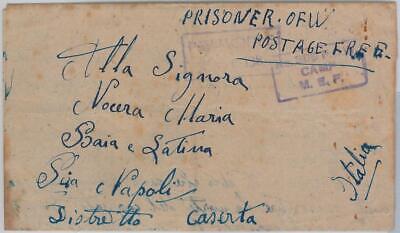 PRISONER. OF W
POSTAGE FREE.
CAMP
M. E. F.
Alla Signora
Nocera Maria
Baia e Latina
Napoli
Distretto Caserta
Italia